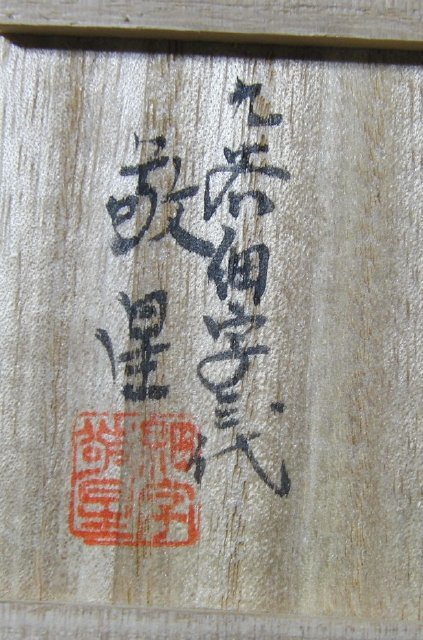 九谷細字三代
敬星
細字
敬星